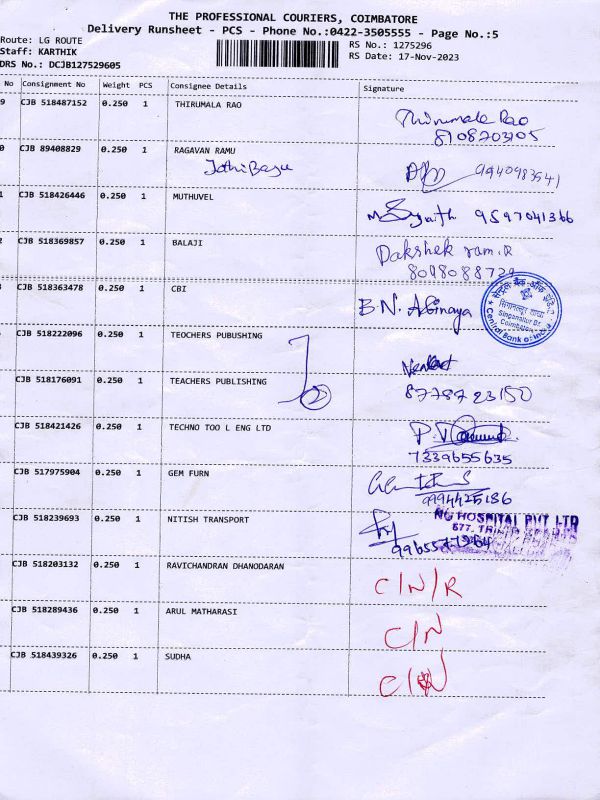 THE PROFESSIONAL COURIERS, COIMBATORE
Delivery Runsheet - PCS - Phone No.:0422-3505555 - Page No.:5
Route: LG ROUTE
RS No.: 1275296
Staff: KARTHIK
RS Date: 17-Nov-2023
DRS No.: DCJB127529605
No Consignment No Weight PCS Consignee Details Signature
9 CJB 518487152 0.250 1 THIRUMALA RAO Thirumala Rao
8108703105
0 CJB 89408829 0.250 1 RAGAVAN RAMU
9940983541
1 CJB 518426446 0.250 1 MUTHUVEL 9597041366
2 CJB 518369857 0.250 1 BALAJI Dakshek ram.R
8098088729
CJB 518363478 0.250 1 CBI B.N. Abinaya
सेन्ट्रल बैंक ऑफ इंडिया
सिंगानल्लूर शाखा
Singanallur Br.
Coimbatore
Central Bank of India
CJB 518222096 0.250 1 TEOCHERS PUBUSHING
CJB 518176091 0.250 1 TEACHERS PUBLISHING Venkat
8778723150
CJB 518421426 0.250 1 TECHNO TOO L ENG LTD
7339655635
CJB 517975904 0.250 1 GEM FURN
9994425186
CJB 518239693 0.250 1 NITISH TRANSPORT
NG HOSPITAL PVT LTD
577,
CJB 518203132 0.250 1 RAVICHANDRAN DHANODARAN C/N/R
CJB 518289436 0.250 1 ARUL MATHARASI C/N
CJB 518439326 0.250 1 SUDHA C/N